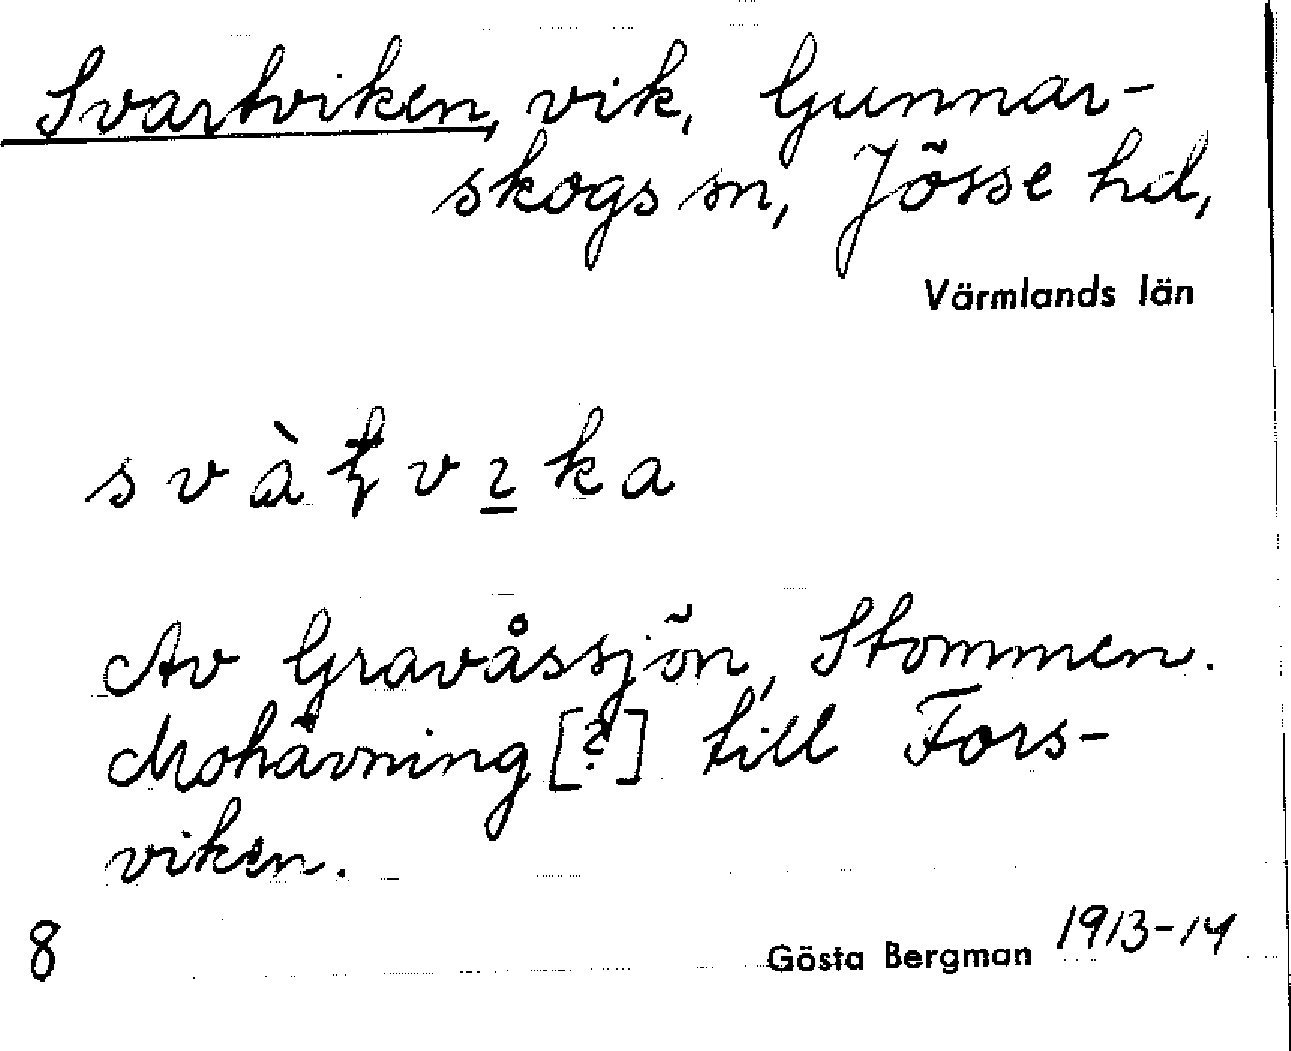 Svartviken, vik, Gunnar-
skogs sn, Jösse hd,
Värmlands län
Av Gravåssjön, Stommen.
Mohävning [?] till Fors-
viken.
8
Gösta Bergman 1913-14